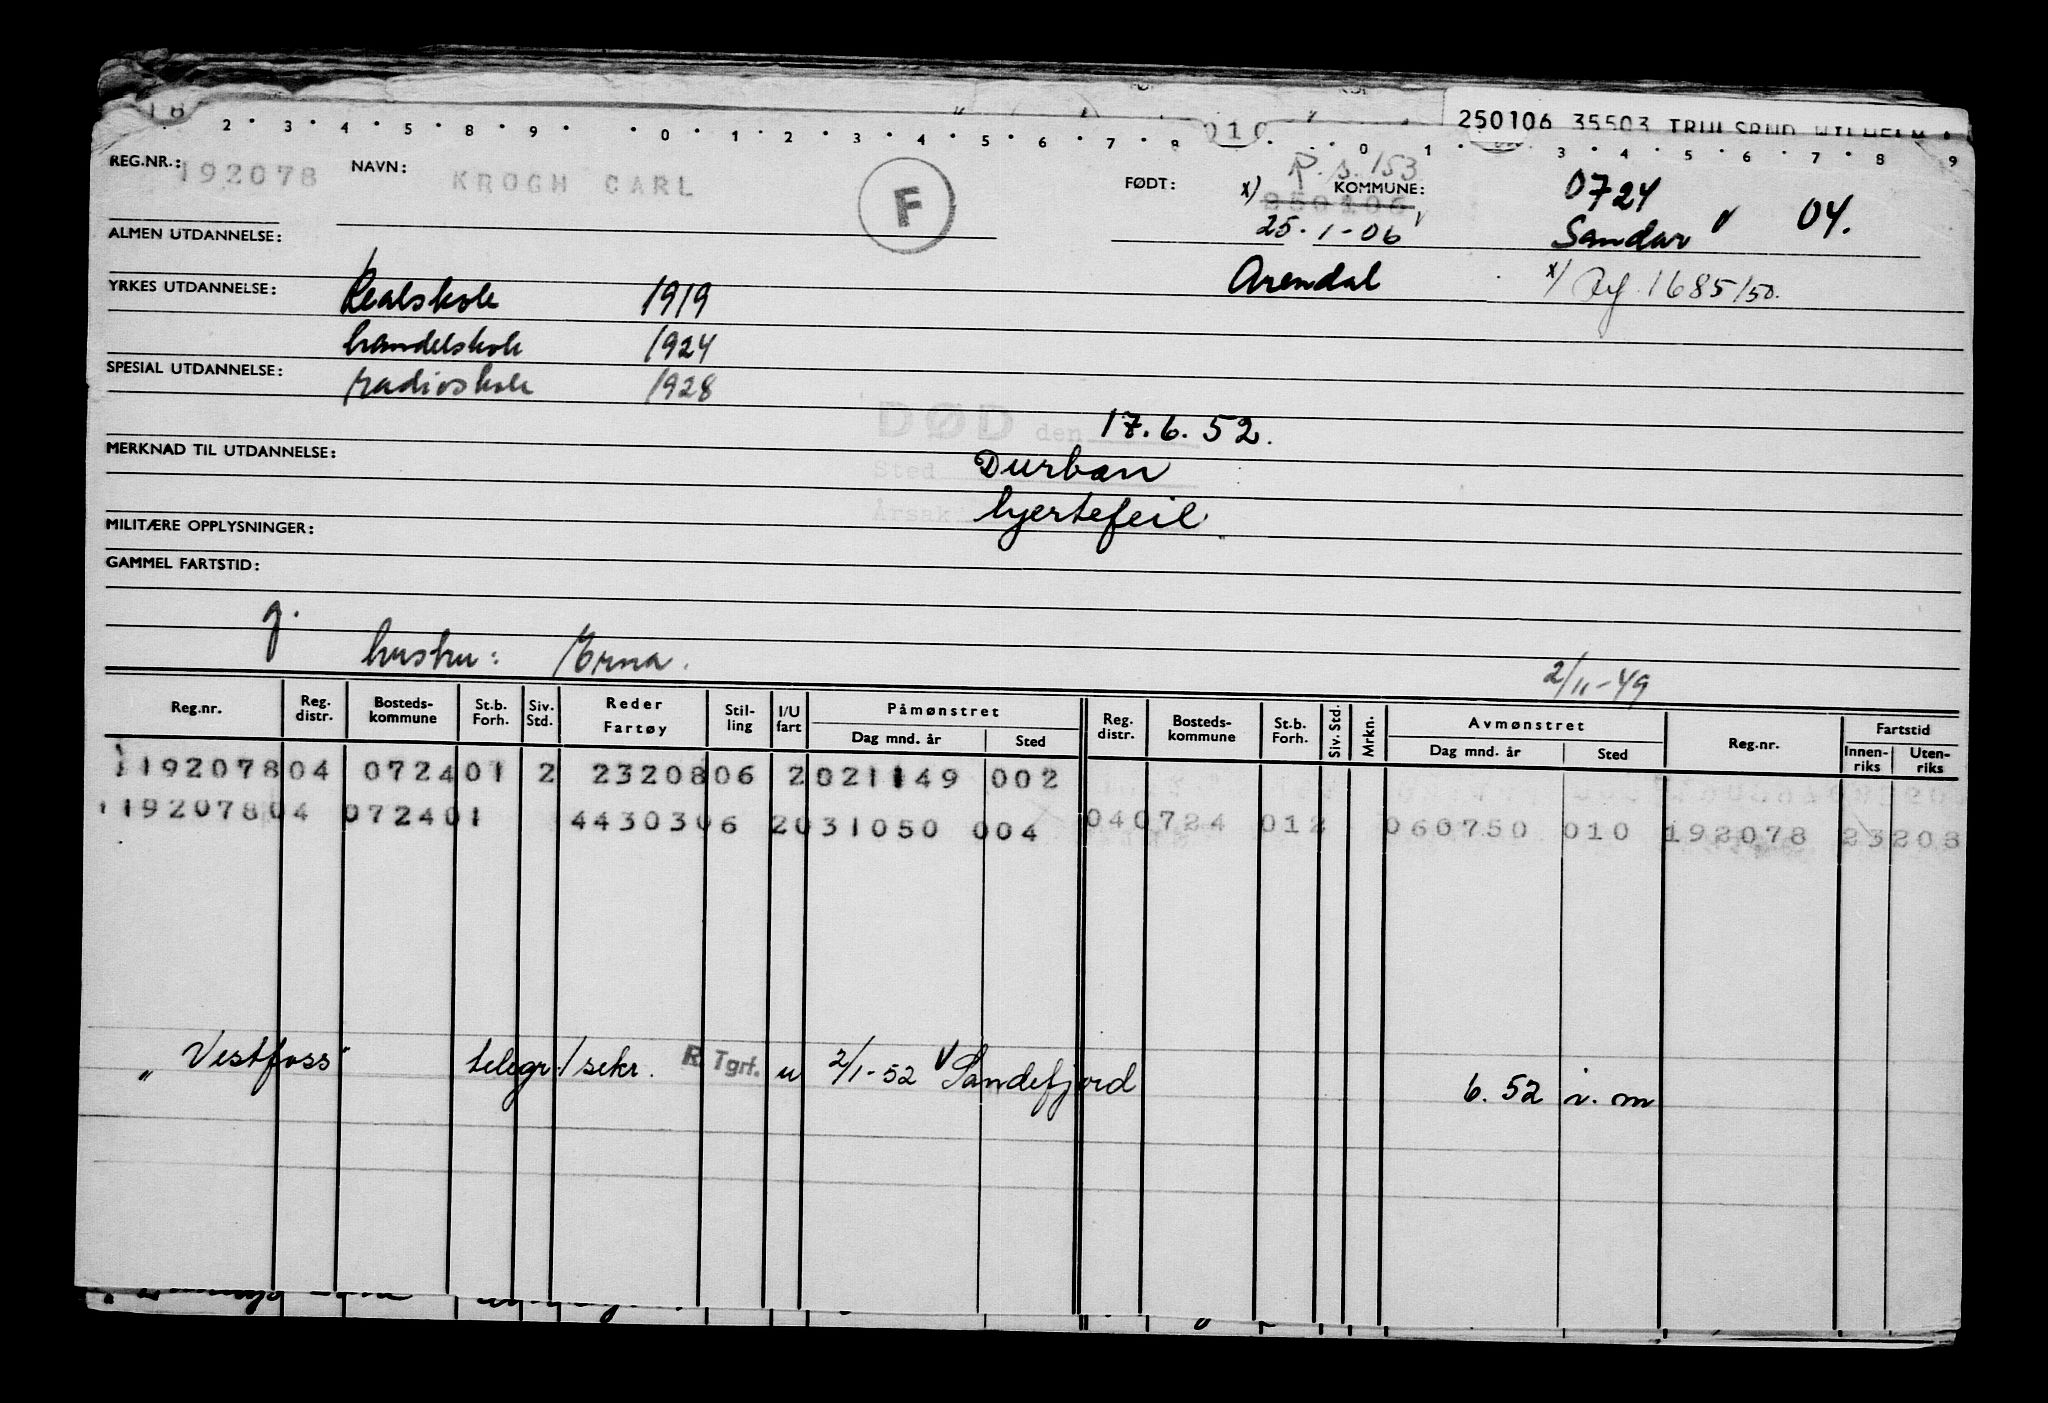 250106 35503 TRULSRUD WILHELM
2 3 4 5 8 9 0 1 2 3 4 5 6 7 8 0 1 3 4 5 6 7 8 9
REG.NR.: 192078 NAVN: KROGH CARL F FØDT: x) 250106 R.s. 153 KOMMUNE: 0724
25.1-06 Sandar v 04.
ALMEN UTDANNELSE:
Arendal x) Ref. 1685/50.
YRKES UTDANNELSE: Realskole 1919
handelskole 1924
SPESIAL UTDANNELSE: radioskole 1928
DØD den 17.6.52.
MERKNAD TIL UTDANNELSE: Sted Durban
Årsak hjertefeil.
MILITÆRE OPPLYSNINGER:
GAMMEL FARTSTID:
g.
hustru: Erna. 2/11-49
Reg.nr. Reg. distr. Bosteds-kommune St.b. Forh. Siv. Std. Reder Fartøy Stil-ling I/U fart Påmønstret Dag mnd. år Sted Reg. distr. Bosteds-kommune St.b. Forh. Siv. Std. Mrkn. Avmønstret Dag mnd. år Sted Reg.nr. Fartstid Innen-riks Uten-riks
119207804 072401 2 2320806 2021149 002
119207804 072401 4430306 2031050 004 040724 012 060750 010 192078 23208
"Vestfoss" telegr./sekr. R.Tgrf. u 2/1-52 v Sandefjord 6.52 i.m